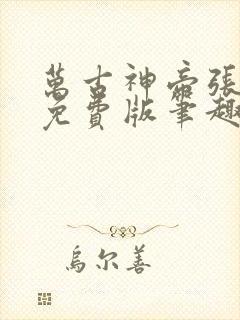 萬古神帝張
免費版筆趣
烏尔善